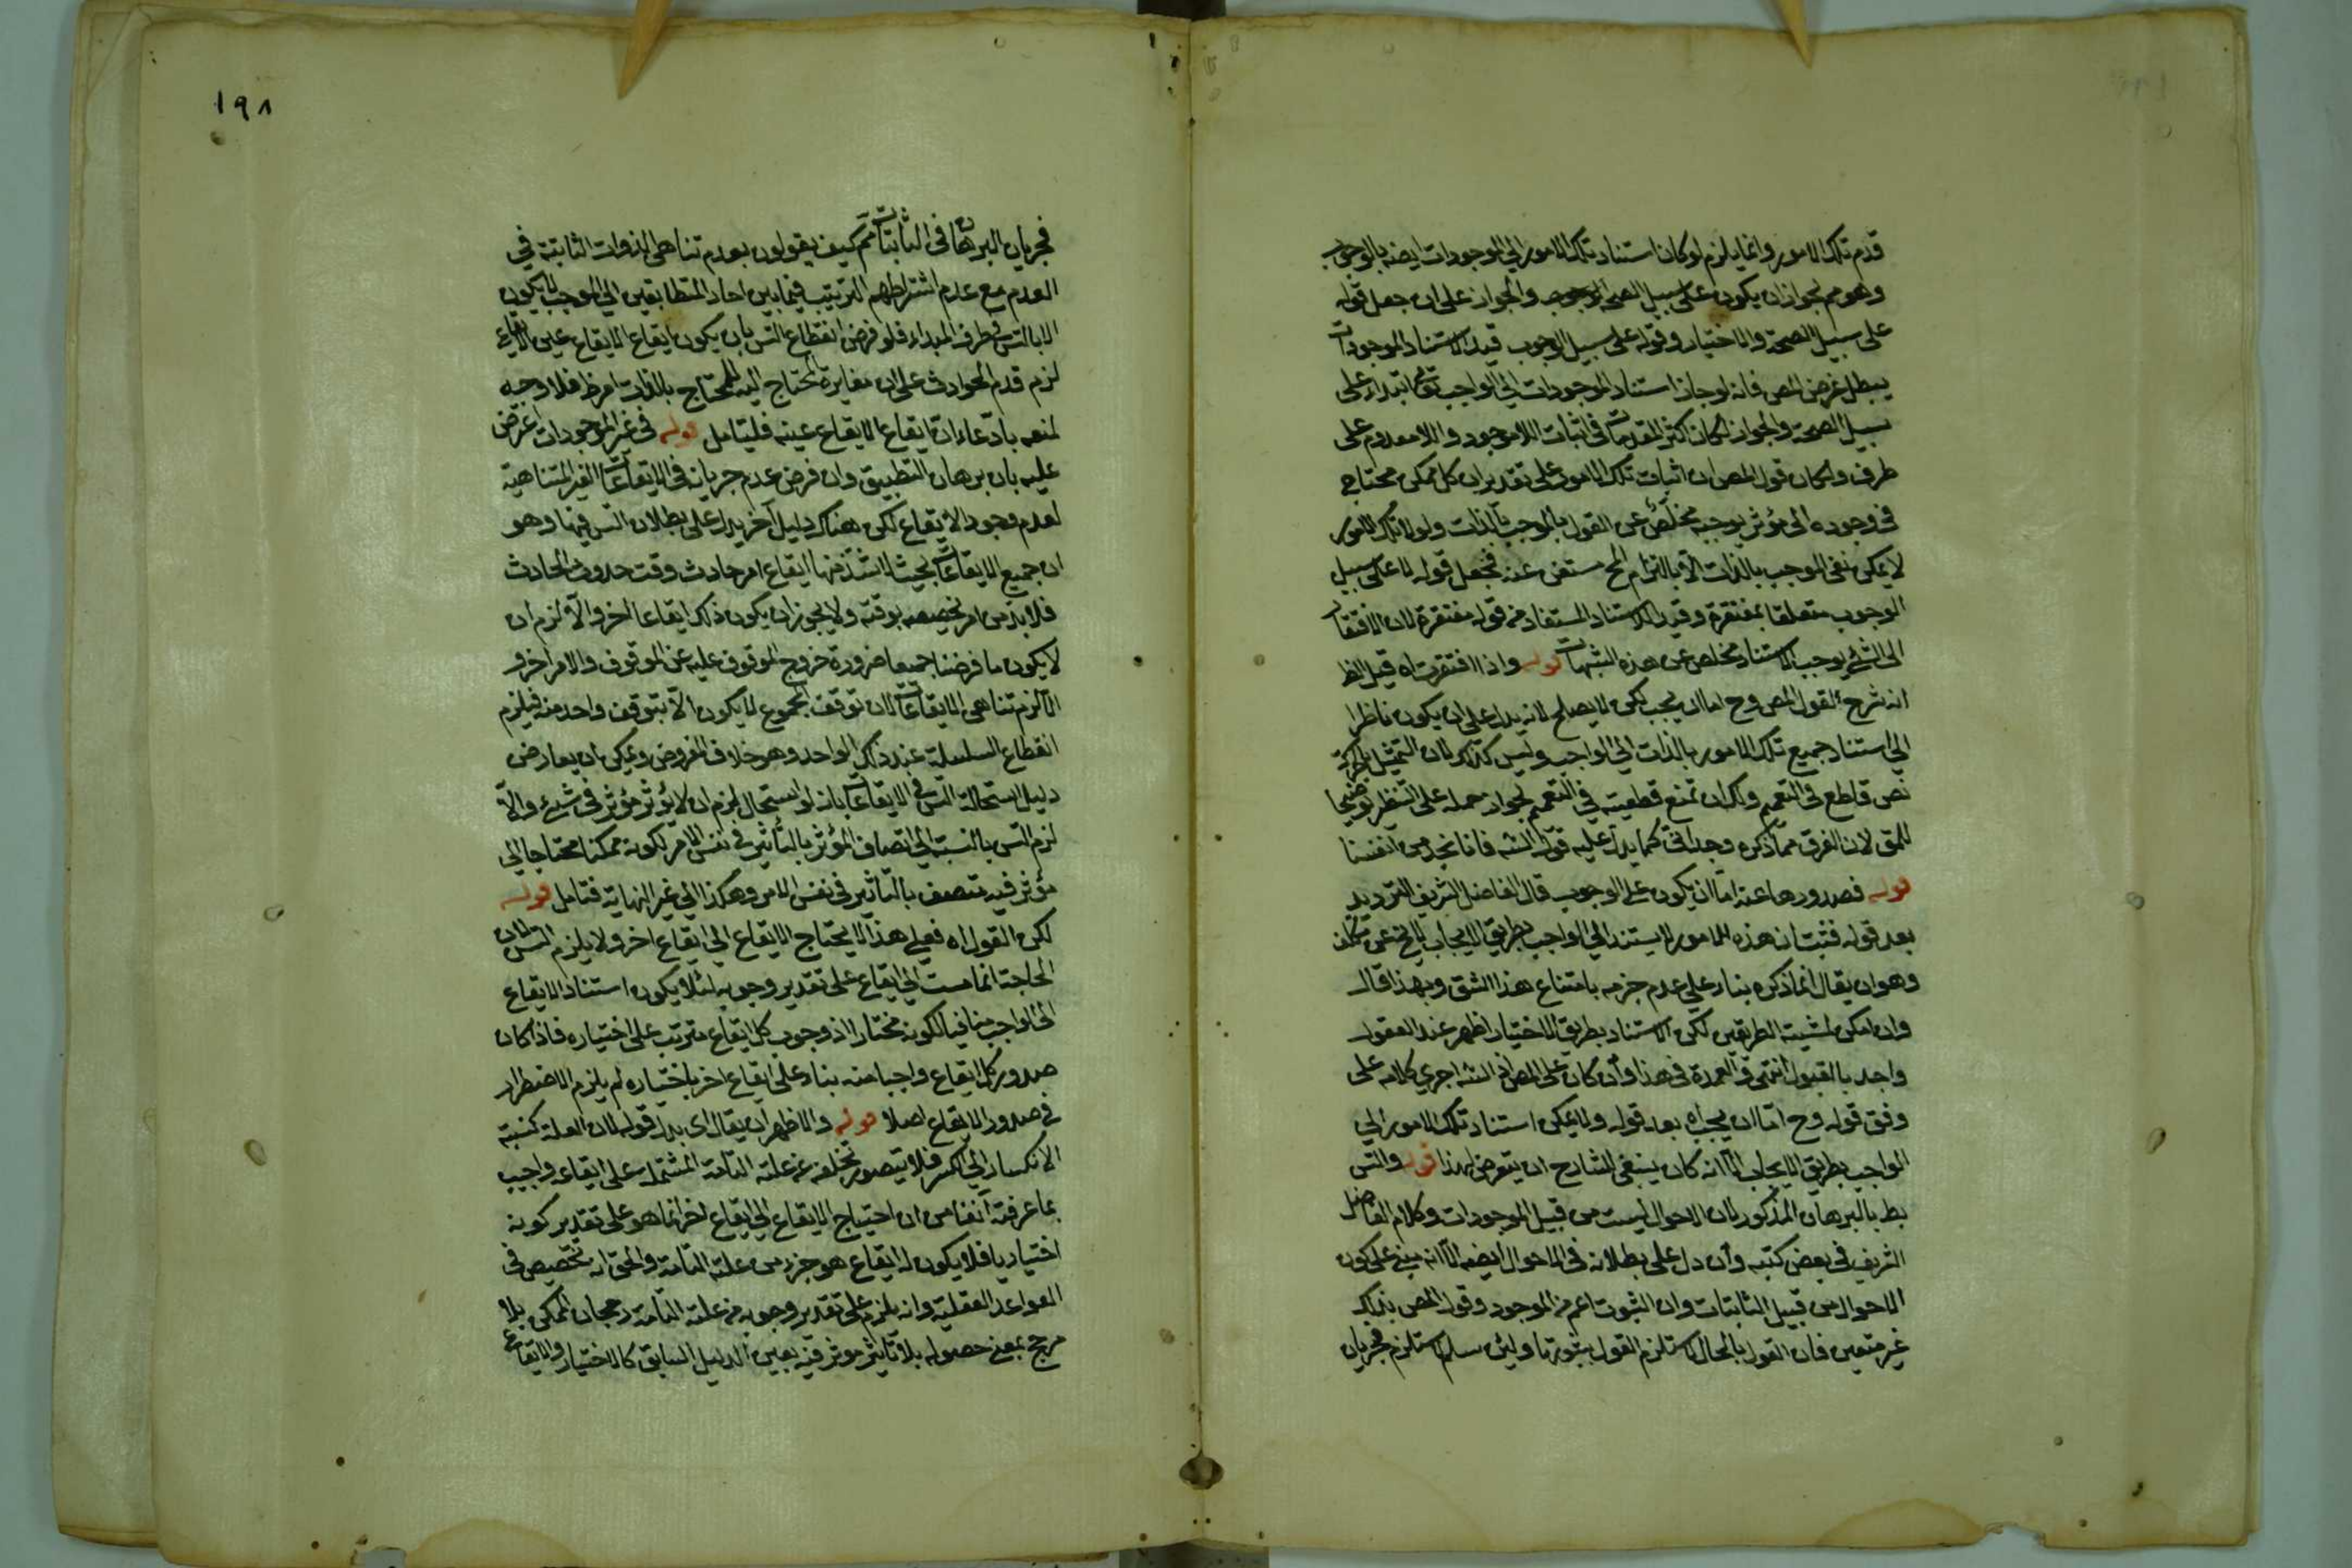 قدم تلك الامور وانما يلزم لو كان استناد تلك الامور الى الموجودات ايضه بالوجوب
وهو مم لجواز ان يكون على سبيل الصحة والجواز على ان جعل قوله
على سبيل الصحة والاختيار وقوله على سبيل الوجوب قيد الاستناد الموجودات
يبطل غرض المص فانه لو جاز استناد الموجودات الى الواجب تعالى ابتداء على
سبيل الصحة والجواز لكان اكثر المقدمات في اثبات اللاموجود واللامعدوم على
طرف ولكان قول المص ان اثبات تلك الامور على تقدير ان كل ممكن محتاج
في وجوده الى مؤثر يوجبه مخلص عن القول بالموجب بالذات ولولا تلك الامور
لا يمكن نفى الموجب بالذات الا بالتزام المح مستغنى عنه فجعل قوله لا على سبيل
الوجوب متعلقا بمفتقرة وقيد الاستناد المستفاد من قوله مفتقرة لان الافتقار
الى الشئ يوجب الاستناد مخلص عن هذه الشبهات قوله واذا افتقرت اه قيل الظ
انه شرح لقول المص وح اما ان يجب لكن لا يصلح لانه يدل على ان يكون ناظرا
الى استناد جميع تلك الامور بالذات الى الواجب وليس كذلك لان التمثيل بالحركة
نص قاطع في التعميم ولك ان تمنع قطعيته في التعميم لجواز حمله على التنظير توضيحا
للمق لان الفرق مما ذكره وجدانى كما يدل عليه قول الشه فانا نجد من انفسنا
قوله فصدورها عنه اما ان يكون على الوجوب قال الفاضل الشريف الترديد
بعد قوله فثبت ان هذه الامور لا يستند الى الواجب بطريق الايجاب لا يخ عن تكلف
وهو ان يقال انما ذكره بناء على عدم جزمه بامتناع هذا الشق وبهذا قال
وان امكن تمشية الطريقين لكن الاستناد بطريق الاختيار اظهر عند العقول
واجد بالقبول انتهى والعمدة في هذا وان كان على المص اذ الشه اجرى كلامه على
وفق قوله وح اما ان يجب اه بعد قوله ولا يمكن استناد تلك الامور الى
الواجب بطريق الايجاب الا انه كان ينبغى للشارح ان يتعرض لهذا قوله والتس
بط بالبرهان المذكور لان الاحوال ليست من قبيل الموجودات وكلام الفاضل
الشريف في بعض كتبه وان دل على بطلانه في الاحوال ايضه الا انه مبنى على كون
الاحوال من قبيل الثابتات وان الثبوت اعم من الموجود وقول المص بذلك
غير متعين فان القول بالحال لا يستلزم القول بثبوتها ولئن سلم الاستلزم فجريان
١٩٨
فجريان البرهان في الثابتات مم كيف يقولون بعدم تناهى الذوات الثابتة في
العدم مع عدم اشتراطهم الترتيب فيما بين احاد المتطابقين الى الموجب لا يكون
الا بالتس في طرف المبداء فلو فرض انقطاع التس بان يكون ايقاع الايقاع عين الايقاع
لزم قدم الحوادث على ان مغايرة المحتاج اليه للمحتاج بالذات امر ظ فلا وجه
لمنعه بادعاء ان ايقاع الايقاع عينه فليتامل قوله في غير الموجودات اعترض
عليه بان برهان التطبيق وان فرض عدم جريانه في الايقاعات الغير المتناهية
لعدم وجود الايقاع لكن هناك دليل آخر يدل على بطلان التس فيها وهو
ان جميع الايقاعات بحيث لا يشذ منها ايقاع امر حادث وقت حدوث الحادث
فلا بد من امر تخصيصه بوقته ولا يجوز ان يكون ذلك ايقاعا اخر والا لزم ان
لا يكون ما فرضنا جميعا ضرورة خروج الموقوف عليه عن الموقوف والامر اخر و
الا لزم تناهى الايقاعات لان توقف المجموع لا يكون الا بتوقف واحد منه فيلزم
انقطاع السلسلة عند ذلك الواحد وهو خلاف المفروض ويمكن ان يعارض
دليل استحالة التس في الايقاعات بانه لو استحال لزم ان لا يؤثر مؤثر في شئ والا
لزم التس بالنسبة الى اتصاف المؤثر بالتأثير في نفس الامر لكونه ممكنا محتاجا الى
مؤثر فيه متصف بالتأثير في نفس الامر وهكذا الى غير النهاية فتامل قوله
لكن القول اه فعلى هذا لا يحتاج الايقاع الى ايقاع اخر ولا يلزم التس لان
الحاجة انما مست الى ايقاع على تقدير وجوبه لئلا يكون استناد الايقاع
الى الواجب منافيا لكونه مختارا اذ وجوب كل ايقاع مترتب على اختياره فاذا كان
صدور كل ايقاع واجبا منه بناء على ايقاع اخر باختياره لم يلزم الاضطرار
في صدور الايقاع اصلا قوله والاظهر ان يقال اى بدل قوله لان العلة كنسبة
الانكسار الى الكسر فلا يتصور تخلفه عن علته التامة المشتملة على ايقاعه واجيب
بما عرفته آنفا من ان احتياج الايقاع الى ايقاع اخر انما هو على تقدير كونه
اختياريا فلا يكون له ايقاع هو جزء من علته التامة والحق انه تخصيص في
القواعد العقلية وانه يلزم على تقدير وجوبه من علته التامة رجحان الممكن بلا
مرجح بمعنى حصوله بلا تأثير مؤثر فيه بعين الدليل السابق كالاختيار والايقاع